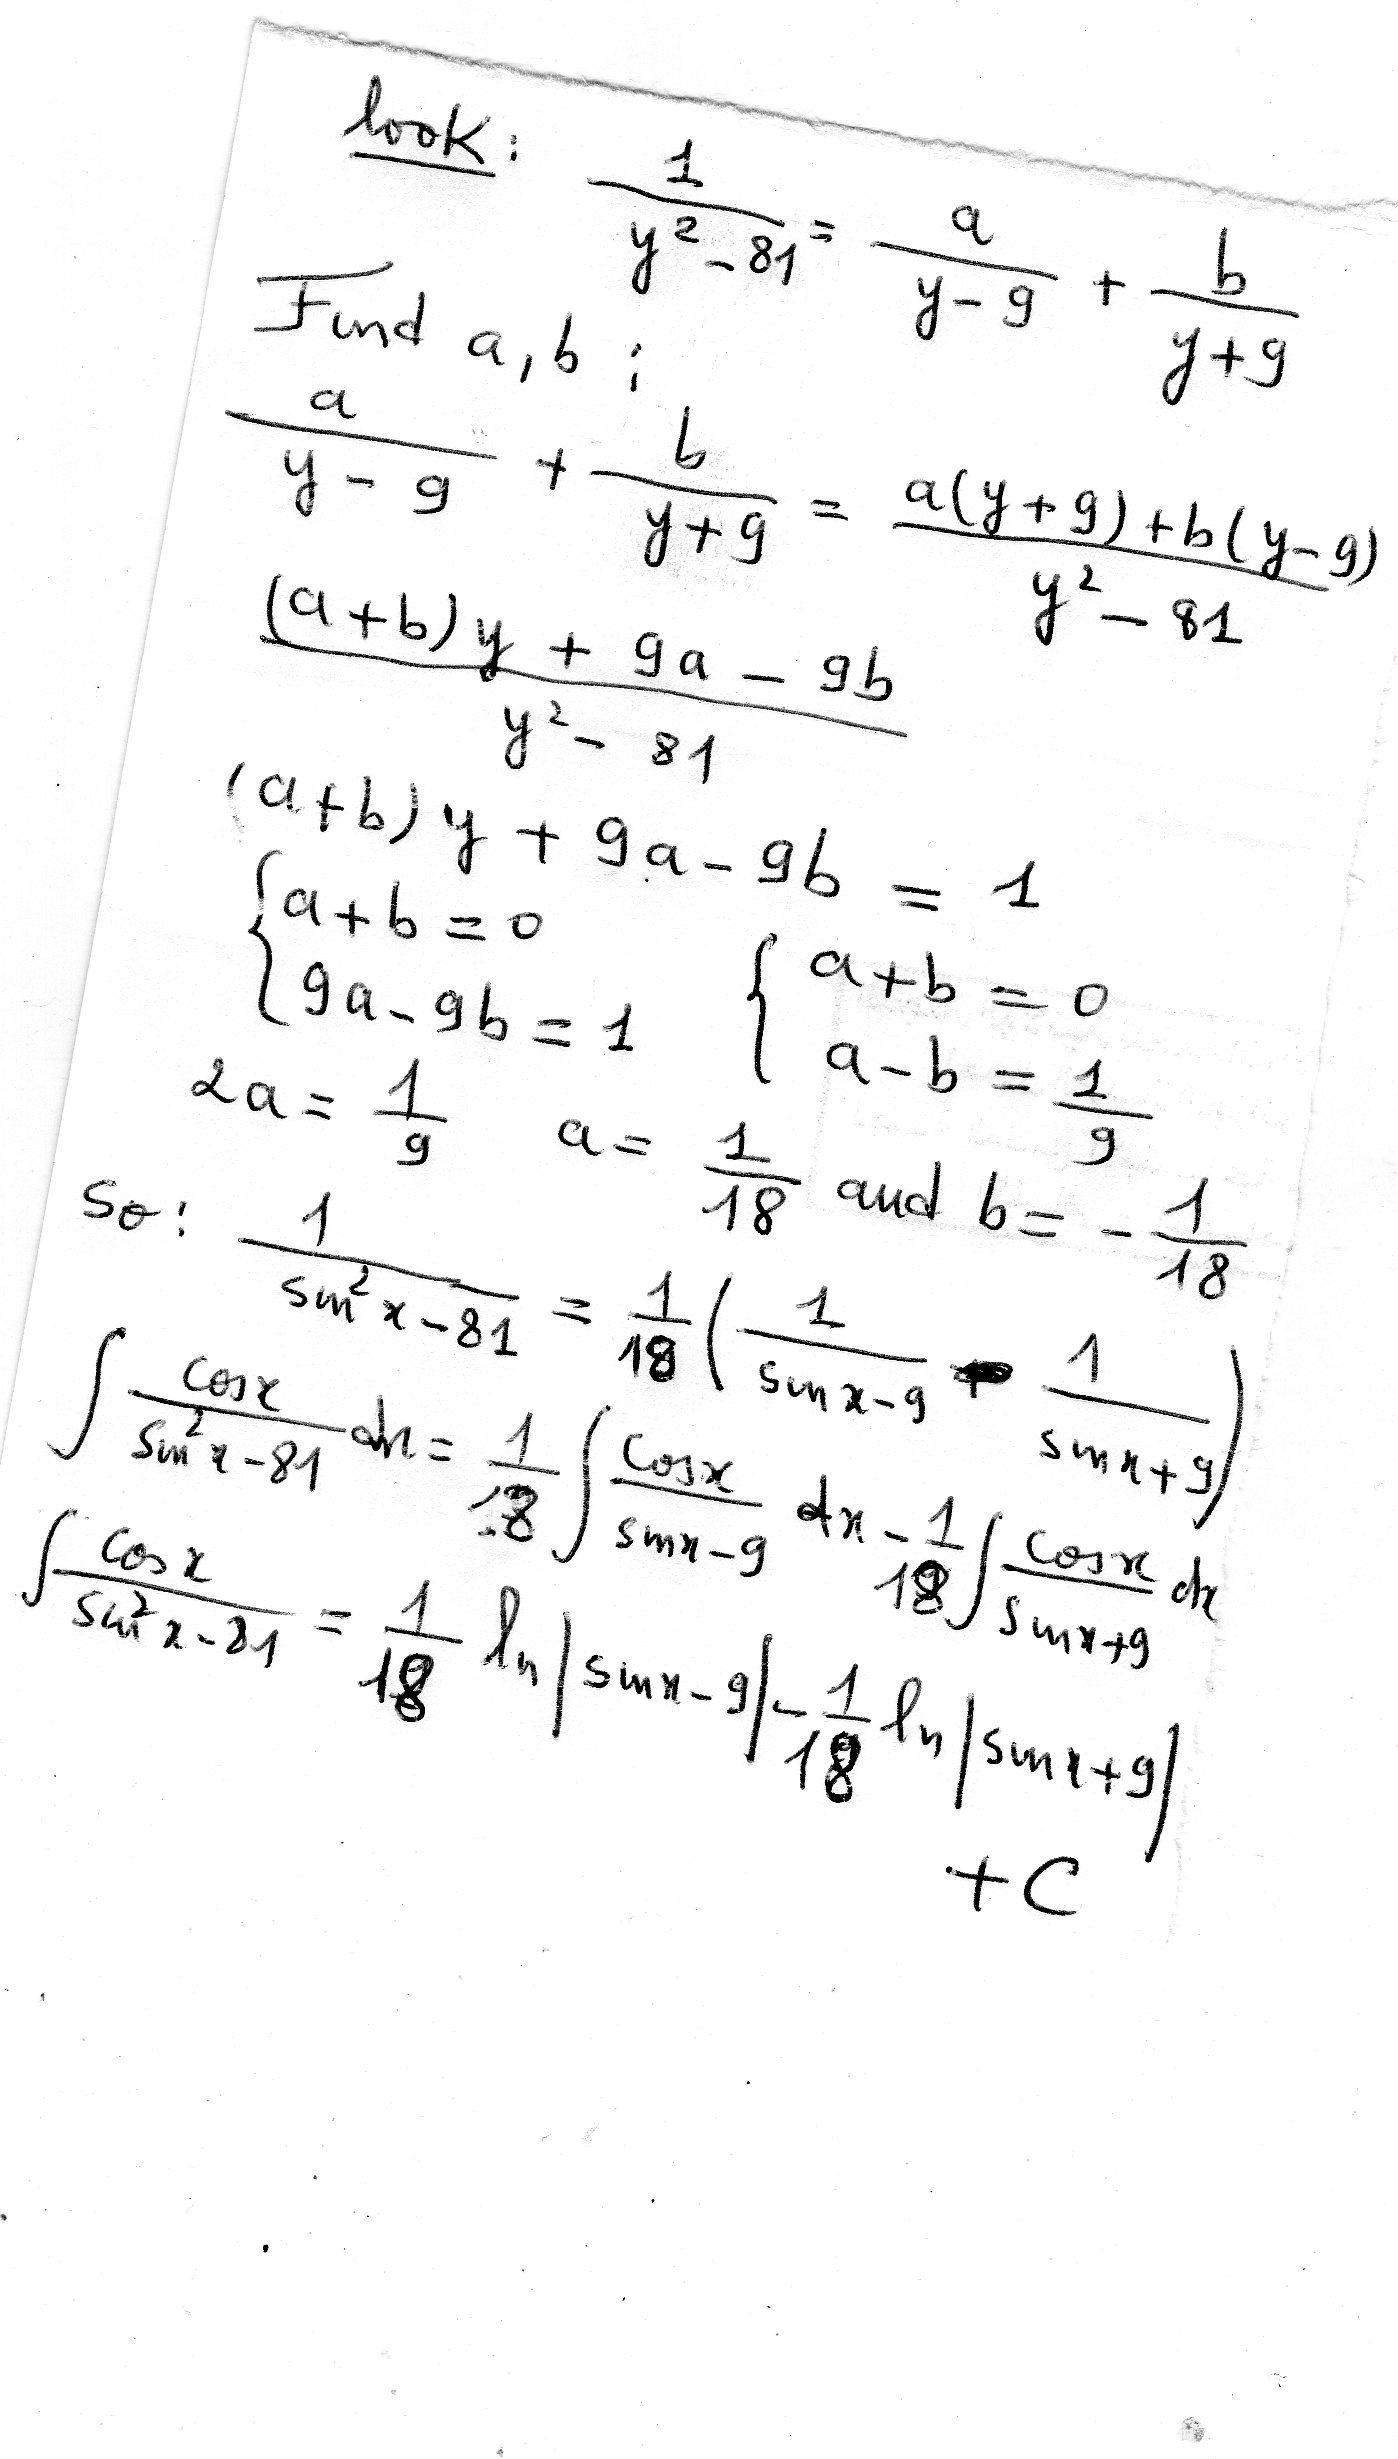 look: 1/(y² - 81) = a/(y - 9) + b/(y + 9)
Find a, b :
a/(y - 9) + b/(y + 9) = (a(y + 9) + b(y - 9))/(y² - 81)
((a + b) y + 9a - 9b)/(y² - 81)
(a + b) y + 9a - 9b = 1
{ a + b = 0
9a - 9b = 1
{ a + b = 0
a - b = 1/9
2a = 1/9 a = 1/18 and b = - 1/18
So: 1/(sin²x - 81) = 1/18 ( 1/(sin x - 9) - 1/(sin x + 9) )
∫ cosx/(sin²x - 81) dx = 1/18 ∫ cosx/(sinx - 9) dx - 1/18 ∫ cosx/(sinx + 9) dx
∫ cosx/(sin²x - 81) = 1/18 ln |sinx - 9| - 1/18 ln |sinx + 9|
+ C